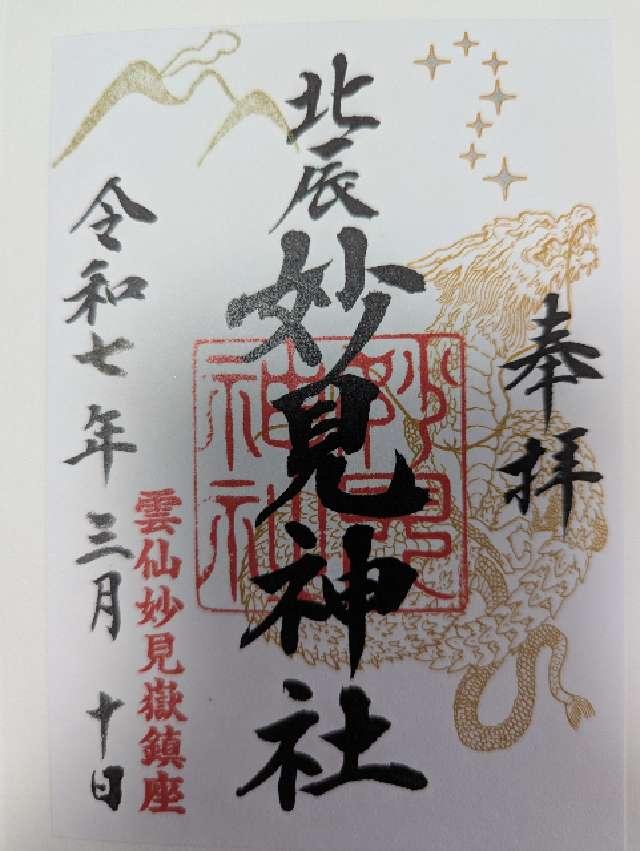 奉拝
北辰
妙見神社
妙見
神社
雲仙妙見嶽鎮座
令和七年三月十日